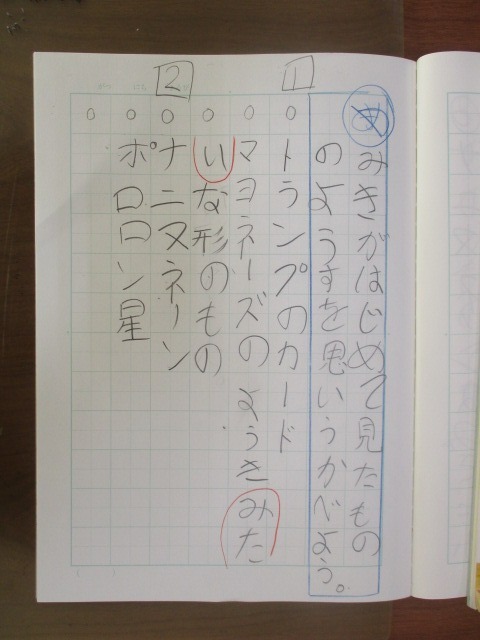 め みきがはじめて見たもの
のようすを思いうかべよう。
1
○トランプのカード
○マヨネーズのようきみた
○いな形のもの
2
○ナニヌネーン
○ポロロン星
○